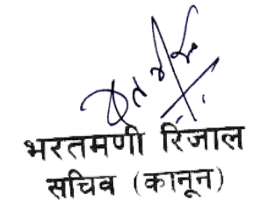 भरतमणी रिजाल
सचिव (कानून)